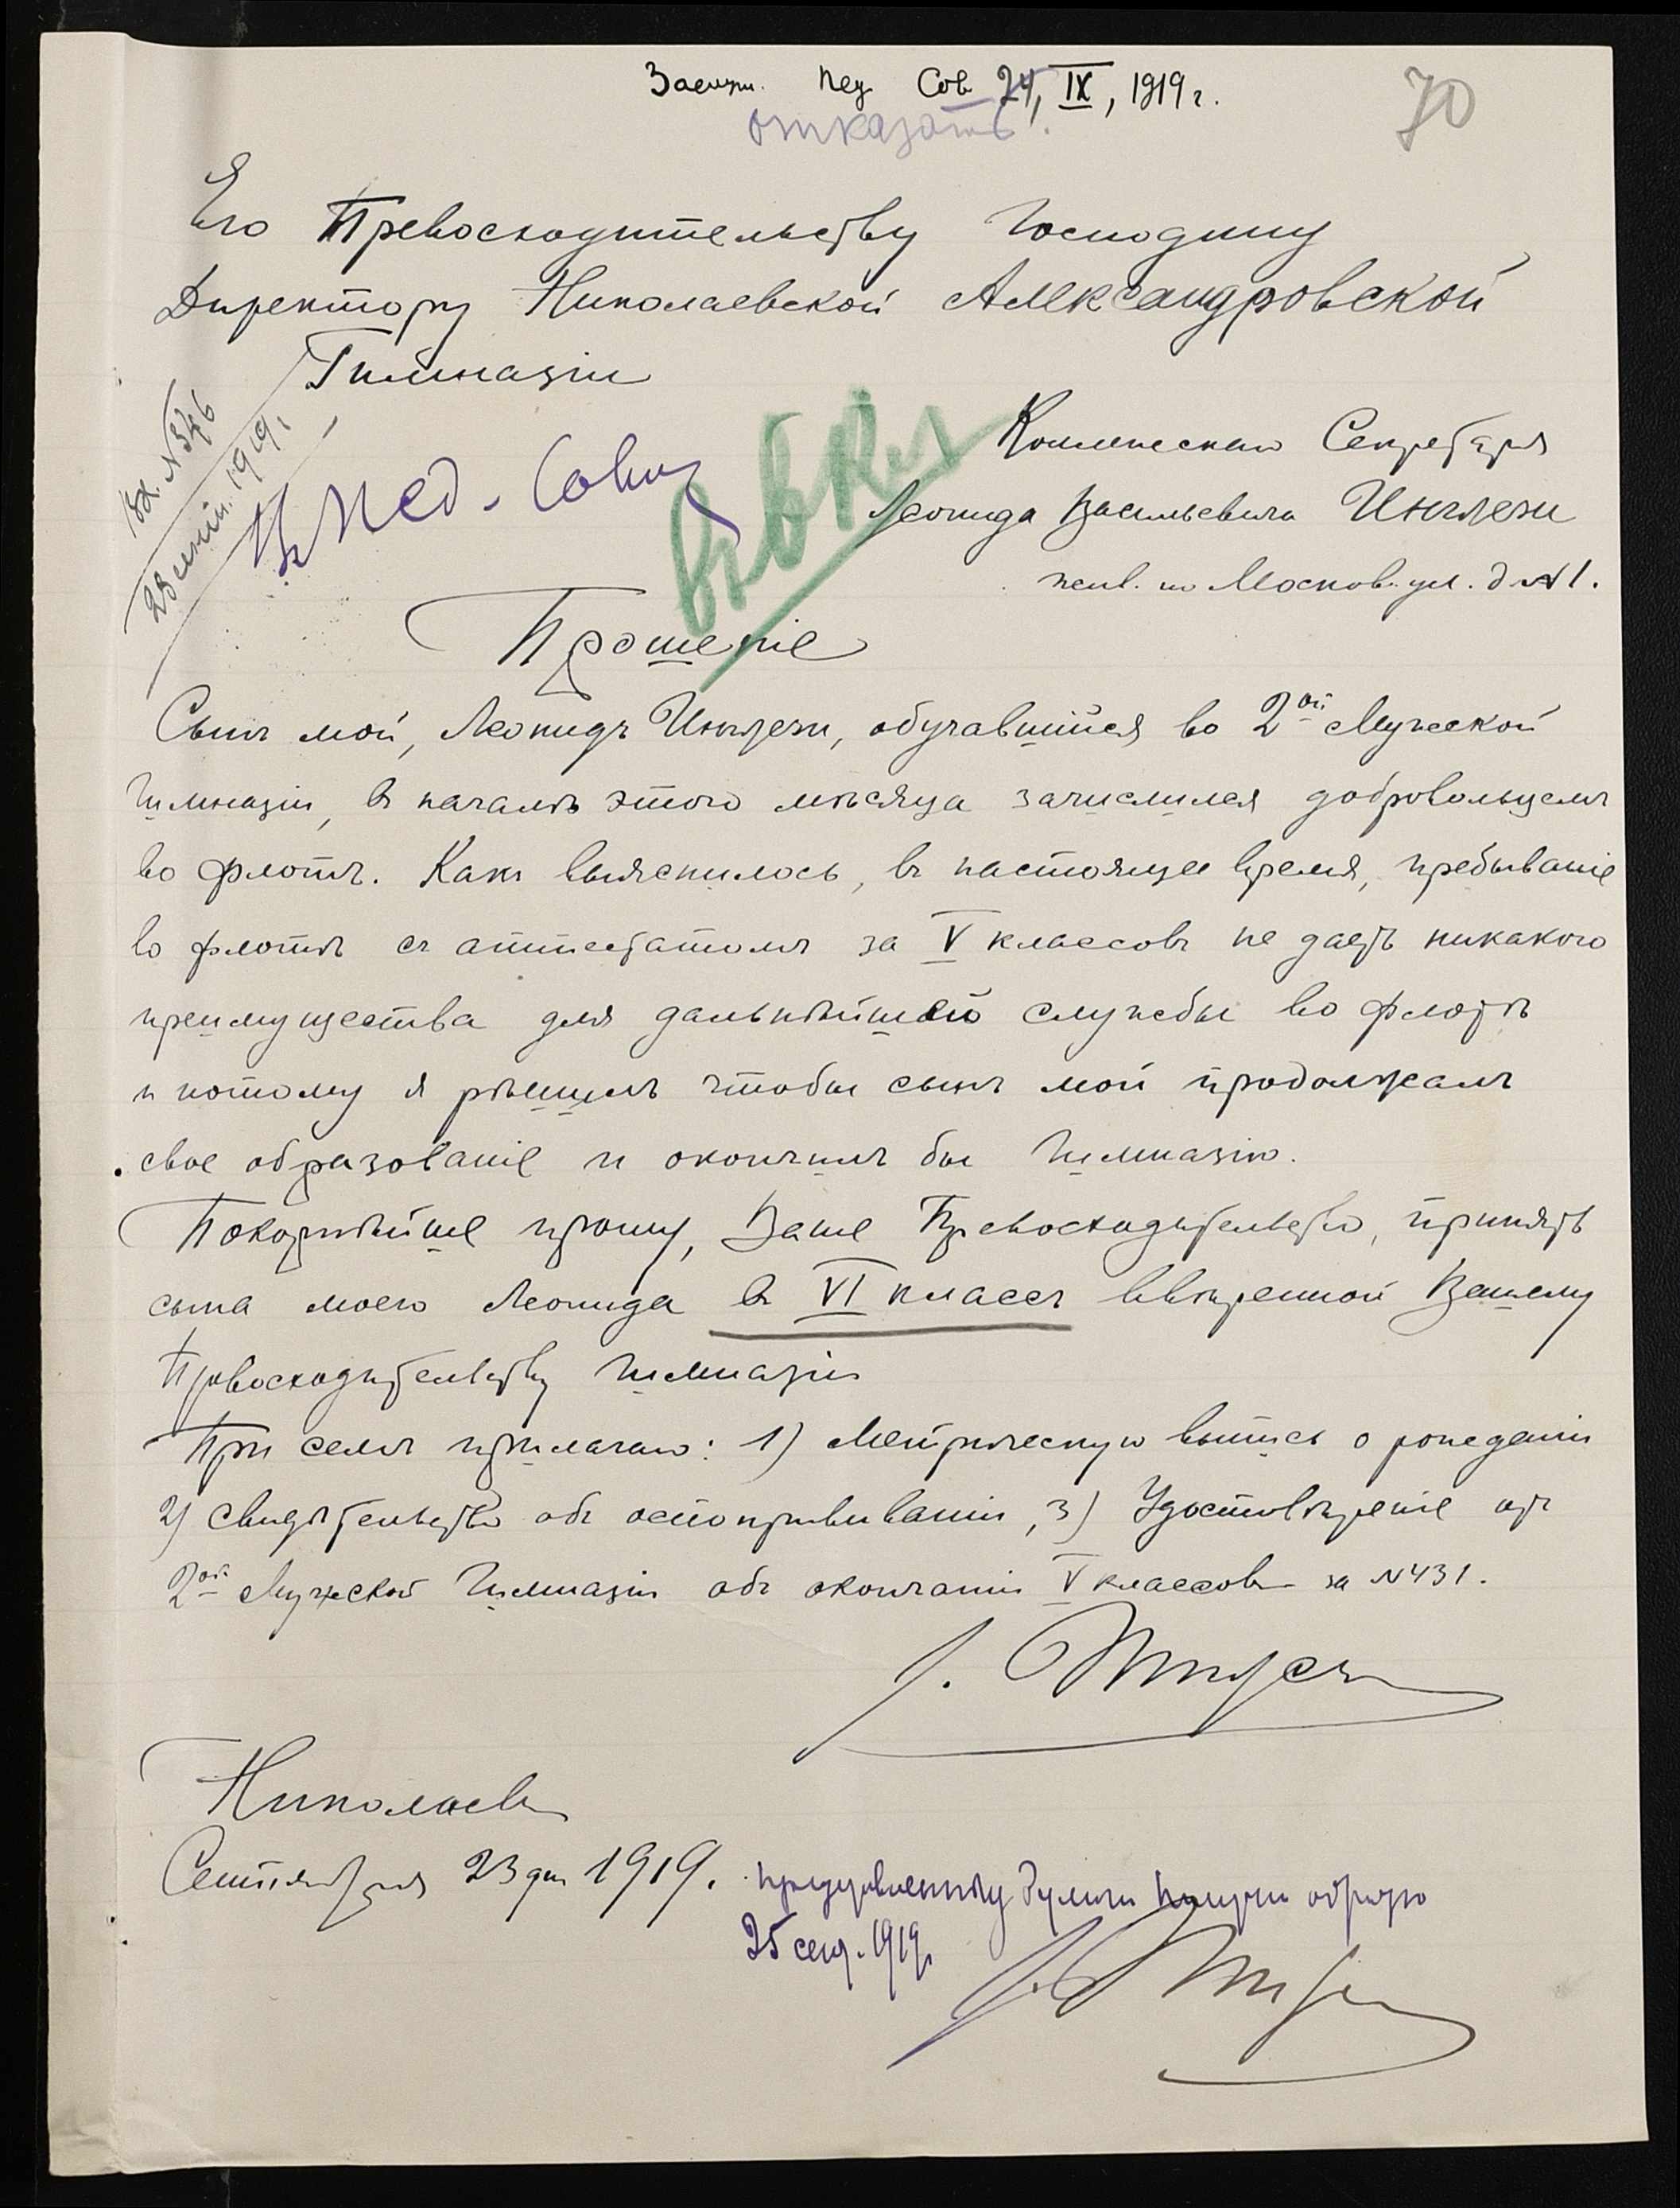 Засѣд. Пед. Сов. 24, IX, 1919 г.
отказать.
70
Его Превосходительству Господину
Директору Николаевской Александровской
Гимназіи
Вх. № 346
23 сент. 1919 г.
Въ Пед. Совѣт
Коллежскаго Секретаря
Леонида Васильевича Инглези
жив. по Москов. ул. д № 1.
Прошеніе
Сынъ мой, Леонидъ Инглези, обучавшійся во 2ой Мужской
гимназіи, въ началѣ этого мѣсяца зачислился добровольцемъ
во флотъ. Какъ выяснилось, въ настоящее время, пребываніе
во флотѣ съ аттестатомъ за V классовъ не даетъ никакого
преимущества для дальнѣйшей службы во флотѣ
и потому я рѣшилъ чтобы сынъ мой продолжалъ
свое образованіе и окончилъ бы гимназію.
Покорнѣйше прошу, Ваше Превосходительство, принять
сына моего Леонида въ VI классъ ввѣренной Вашему
Превосходительству гимназіи
При семъ прилагаю: 1) Метрическую выпись о рожденіи
2) Свидѣтельство объ оспопрививаніи, 3) Удостовѣреніе отъ
2ой Мужской Гимназіи объ окончаніи V классовъ за № 431.
Николаевъ
Сентября 23 дня 1919.
бумаги получи обратно
25 сент. 1919.